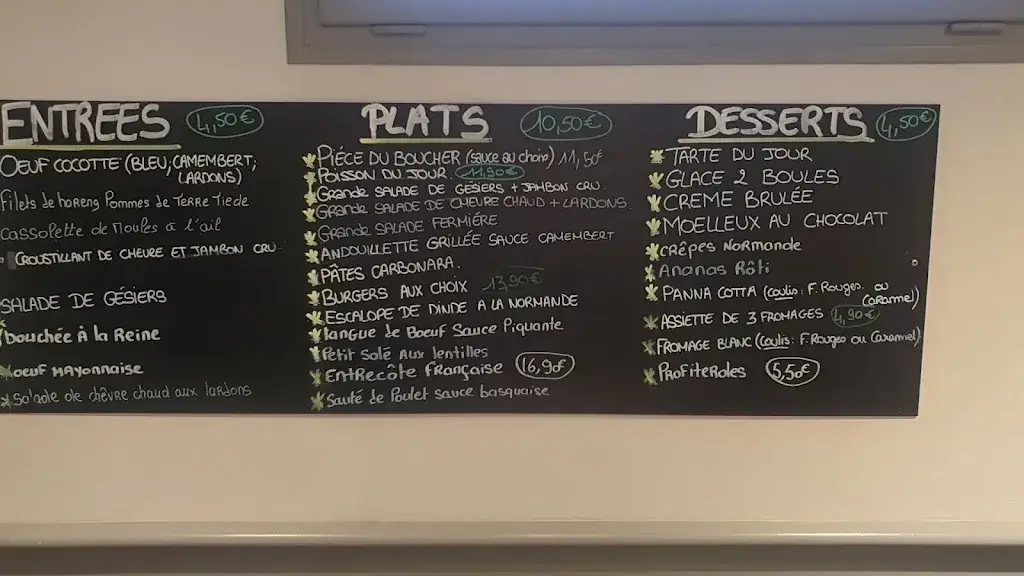 ENTREES 4,50€
OEUF COCOTTE (BLEU, CAMEMBERT,
LARDONS)
Filets de hareng Pommes de Terre Tiede
Cassolette de Moules à l'ail
CROUSTILLANT DE CHEVRE ET JAMBON CRU
SALADE DE GÉSIERS
Bouchée À la Reine
OEUF MAYONNAISE
Salade de chêvre chaud aux lardons
PLATS 10,50€
PIÉCE DU BOUCHER (sauce au choix) 11,50€
POISSON DU JOUR. 11.90€
Grande SALADE DE GÉSIERS + JAMBON CRU.
Grande SALADE DE CHEVRE CHAUD + LARDONS.
Grande SALADE FERMIÉRE
ANDOUILLETTE GRILLÉE SAUCE CAMEMBERT
PÂTES CARBONARA.
BURGERS AUX CHOIX 13,90€
ESCALOPE DE DINDE A LA NORMANDE
langue de Boeuf Sauce Piquante
Petit Salé Aux lentilles
ENTRECÔTE Française 16,90€
Sauté de Poulet sauce basquaise
DESSERTS 4,50€
TARTE DU JOUR
GLACE 2 BOULES
CREME BRULÉE
MOELLEUX AU CHOCOLAT
CRÊPES NORMANDE
Ananas Rôti
PANNA COTTA (coulis: F. Rouges. ou
Caramel)
ASSIETTE DE 3 FROMAGES 4,90€
FROMAGE BLANC (Coulis: F. Rouges ou Caramel)
Profiteroles 5,50€